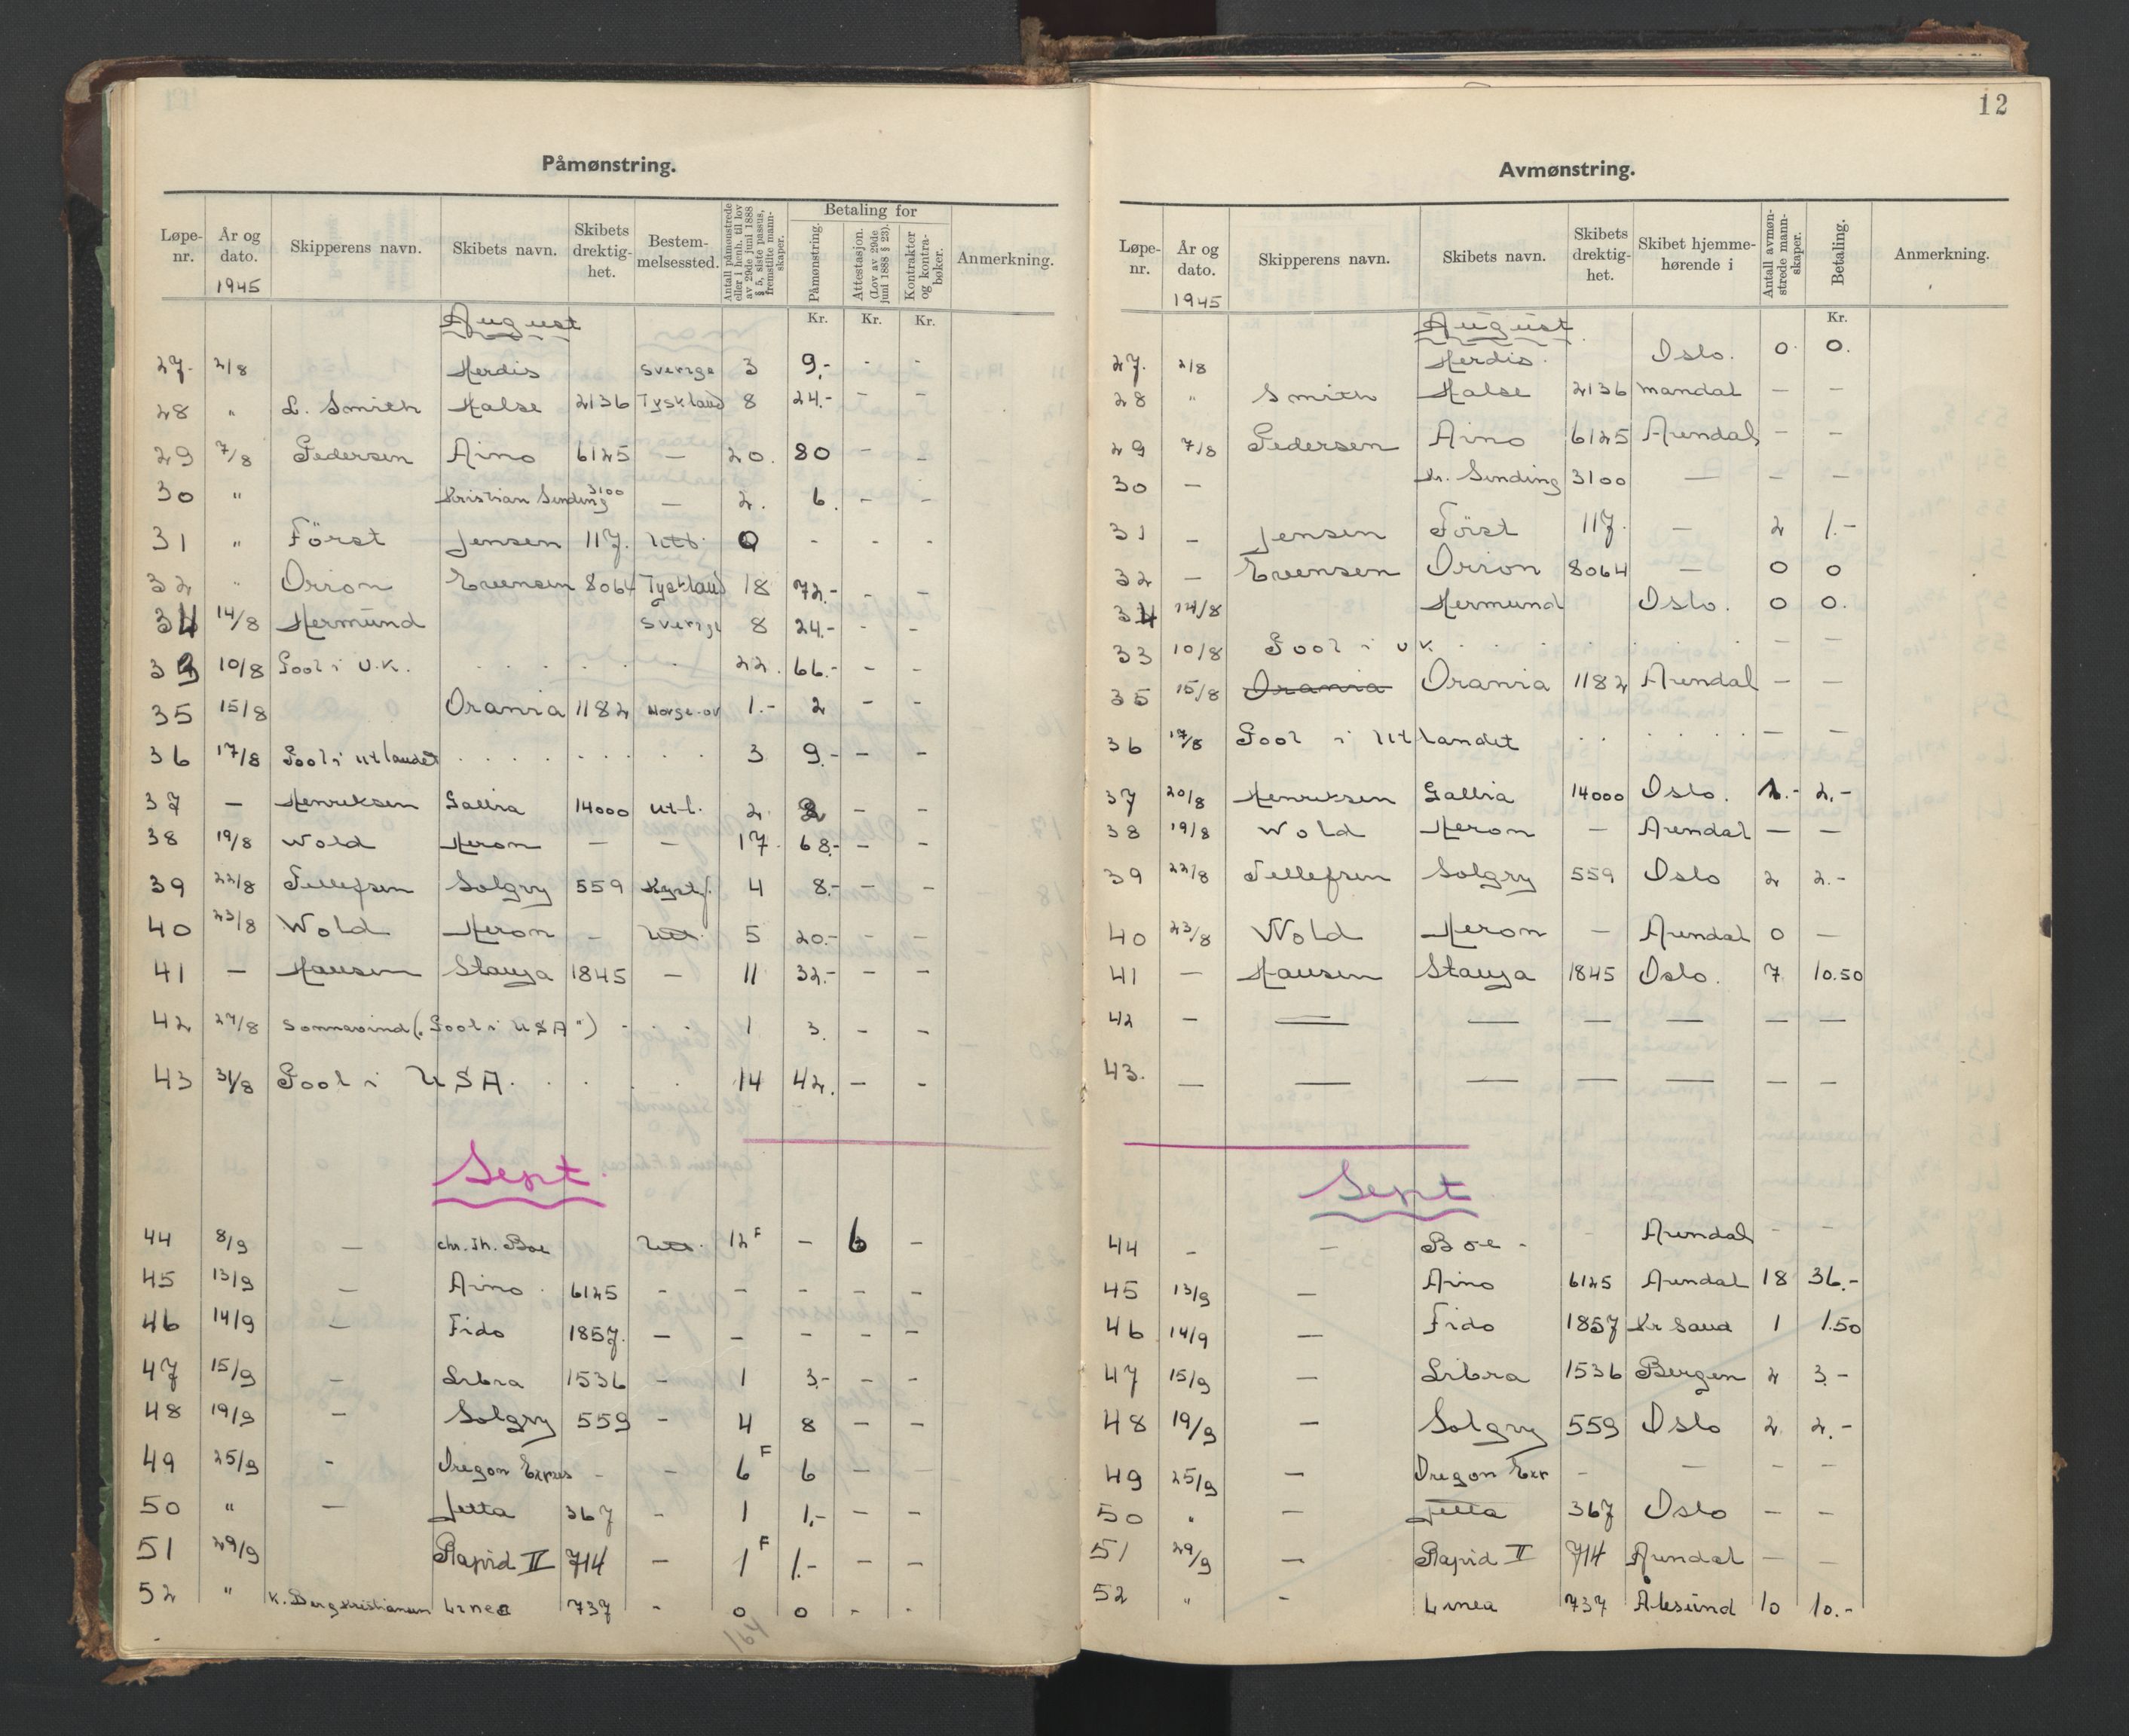 12
Påmønstring.
Løpe-nr. År og dato. 1945 Skipperens navn. Skibets navn. Skibets drektig-het. Bestem-melsessted. Antall påmønstrede eller i henh. til lov av 29de juni 1888 § 5, siste passus, fremstilte mann-skaper. Betaling for Påmønstring. Attestasjon. (Lov av 29de juni 1888 § 23). Kontrakter og kontra-bøker. Anmerkning.
Kr. Kr. Kr.
August
27. 2/8 Herdis Sverige 3 9,- - -
28 " L. Smith Halse 2136 Tyskland 8 24.- - -
29 7/8 Pedersen Aino 6125 — 20. 80 - -
30 " Kristian Sinding 3100 — 2. 6. - -
31 " Först Jensen 117. Utl. 0 - - -
32 " Orion Evensen 8064 Tyskland 18 72.- - -
34 14/8 Hermund Sverige 8 24.- - -
33 10/8 Pool i U.K. . . . . . 22. 66.- - -
35 15/8 Orania 1182 Norge-ov 1.- 2 - -
36 17/8 Pool i utlandet . . . . . . 3 9.- - -
37 — Henriksen Gallia 14000 Utl. 2 2 - -
38 19/8 Wold Heron — — 17. 68.- - -
39 22/8 Tellefsen Solgry 559 Kystf. 4 8.- - -
40 23/8 Wold Heron - Utl. 5 20.- - -
41 — Hansen Stanja 1845 — 11 32.- - -
42 27/8 Sonnavind ("Pool i USA") - . - 1 3. - -
43 31/8 Pool i USA. . . . . 14 42. - -
Sept.
44 8/9 — Chr. Th. Boe Utl. 12 F — 6 -
45 13/9 — Aino. 6125 - - - - -
46 14/9 — Fido 1857. — — - - -
47 15/9 - Libra 1536 - 1 3.- - -
48 19/9 - Solgry 559 - 4 8 - -
49 25/9 - Oregon Expres - - 6 F 6 - -
50 " — Jetta 367 - 1 1.- - -
51 29/9 Rapid II 714 — 1 F 1.- - -
52 " K. Berg Kristiansen Linea 737 - 0 0 - -
164
Avmønstring.
Løpe-nr. År og dato. 1945 Skipperens navn. Skibets navn. Skibets drektig-het. Skibet hjemme-hørende i Antall avmøn-strede mann-skaper. Betaling. Anmerkning.
Kr.
August
27. 2/8 Herdis. Oslo. 0 0.
28 " Smith Halse 2136 Mandal — —
29 7/8 Pedersen Aino 6125 Arendal — —
30 — Kr. Sinding 3100 — - -
31 — Jensen Först 117. — 2 1.-
32 — Evensen Orion 8064 — 0 0
34 14/8 Hermund Oslo. 0 0.
33 10/8 Pool i UK. . . . . — —
35 15/8 Orania Orania 1182 Arendal — —
36 17/8 Pool i Utlandet . . . . . — —
37 20/8 Henriksen Gallia 14000 Oslo. 1.- 2.-
38 19/8 Wold Heron — Arendal — —
39 22/8 Tellefsen Solgry 559 Oslo 2 2.-
40 23/8 Wold Heron — Arendal 0 —
41 — Hansen Stanja 1845 Oslo. 7 10.50
42 — — — — — — —
43. — — — — — — —
Sept
44 - - Boe - - Arendal - -
45 13/9 — Aino 6125 Arendal 18 36.-
46 14/9 — Fido 1857 Kr Sand 1 1.50
47 15/9 — Libra 1536 Bergen 2 3.-
48 19/9 — Solgry 559 Oslo 2 2.-
49 25/9 — Oregon Exp - — - -
50 " — Jetta 367 Oslo — —
51 29/9 — Rapid II 714 Arendal — —
52 " - Linea 737 Ålesund 10 10.-